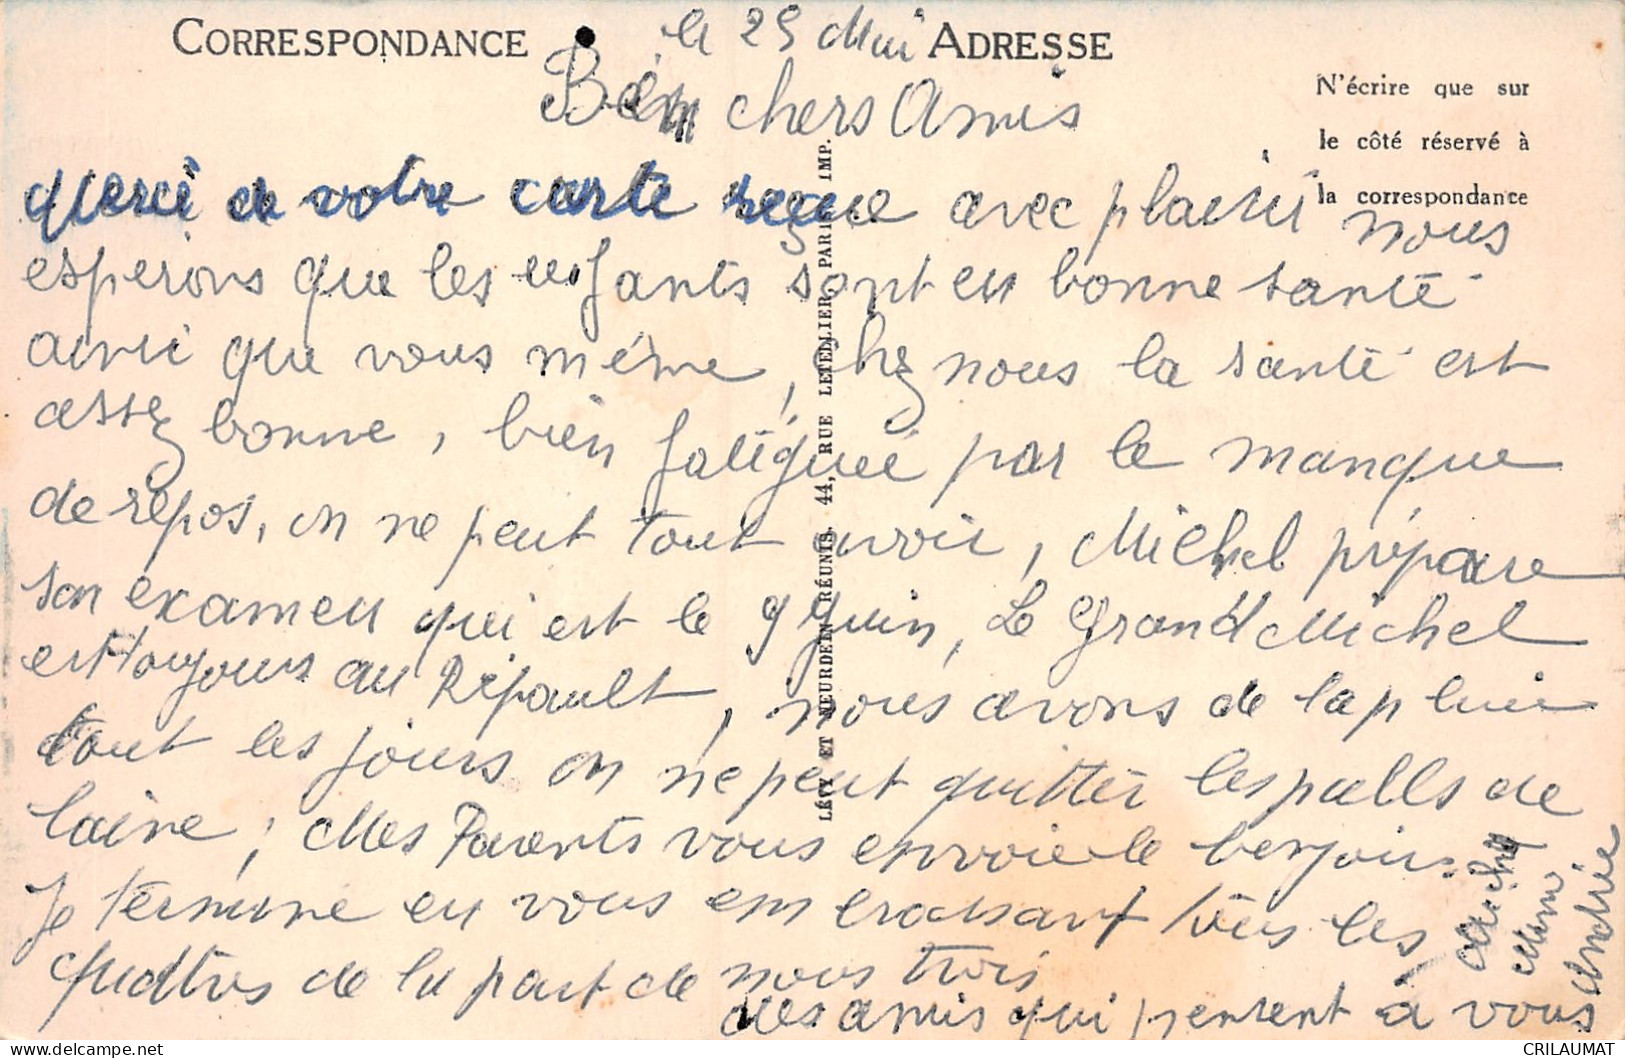 CORRESPONDANCE
le 25 Mai
ADRESSE
N'écrire que sur
le côté réservé à
la correspondance
Bien chers Amis
Merci de votre carte reçue avec plaisir nous
esperons que les enfants sont en bonne santé
ainsi que vous même, chez nous la santé est
assez bonne, bien fatiguée par le manque
de repos, on ne peut tout avoir, Michel prépare
son examen qui est le 9 Juin, Le Grand Michel
est toujours au Ripault, nous avons de la pluie
tout les jours on ne peut quitter les pulls de
laine; Mes Parents vous envoie le bonjour.
Je termine en vous embrassant tous les
quatres de la part de nous trois
des amis qui pensent à vous
Michel
Mimi
Andrée
LÉVY ET NEURDEIN RÉUNIS, 44, RUE LETELLIER, PARIS IMP.
CRILAUMAT